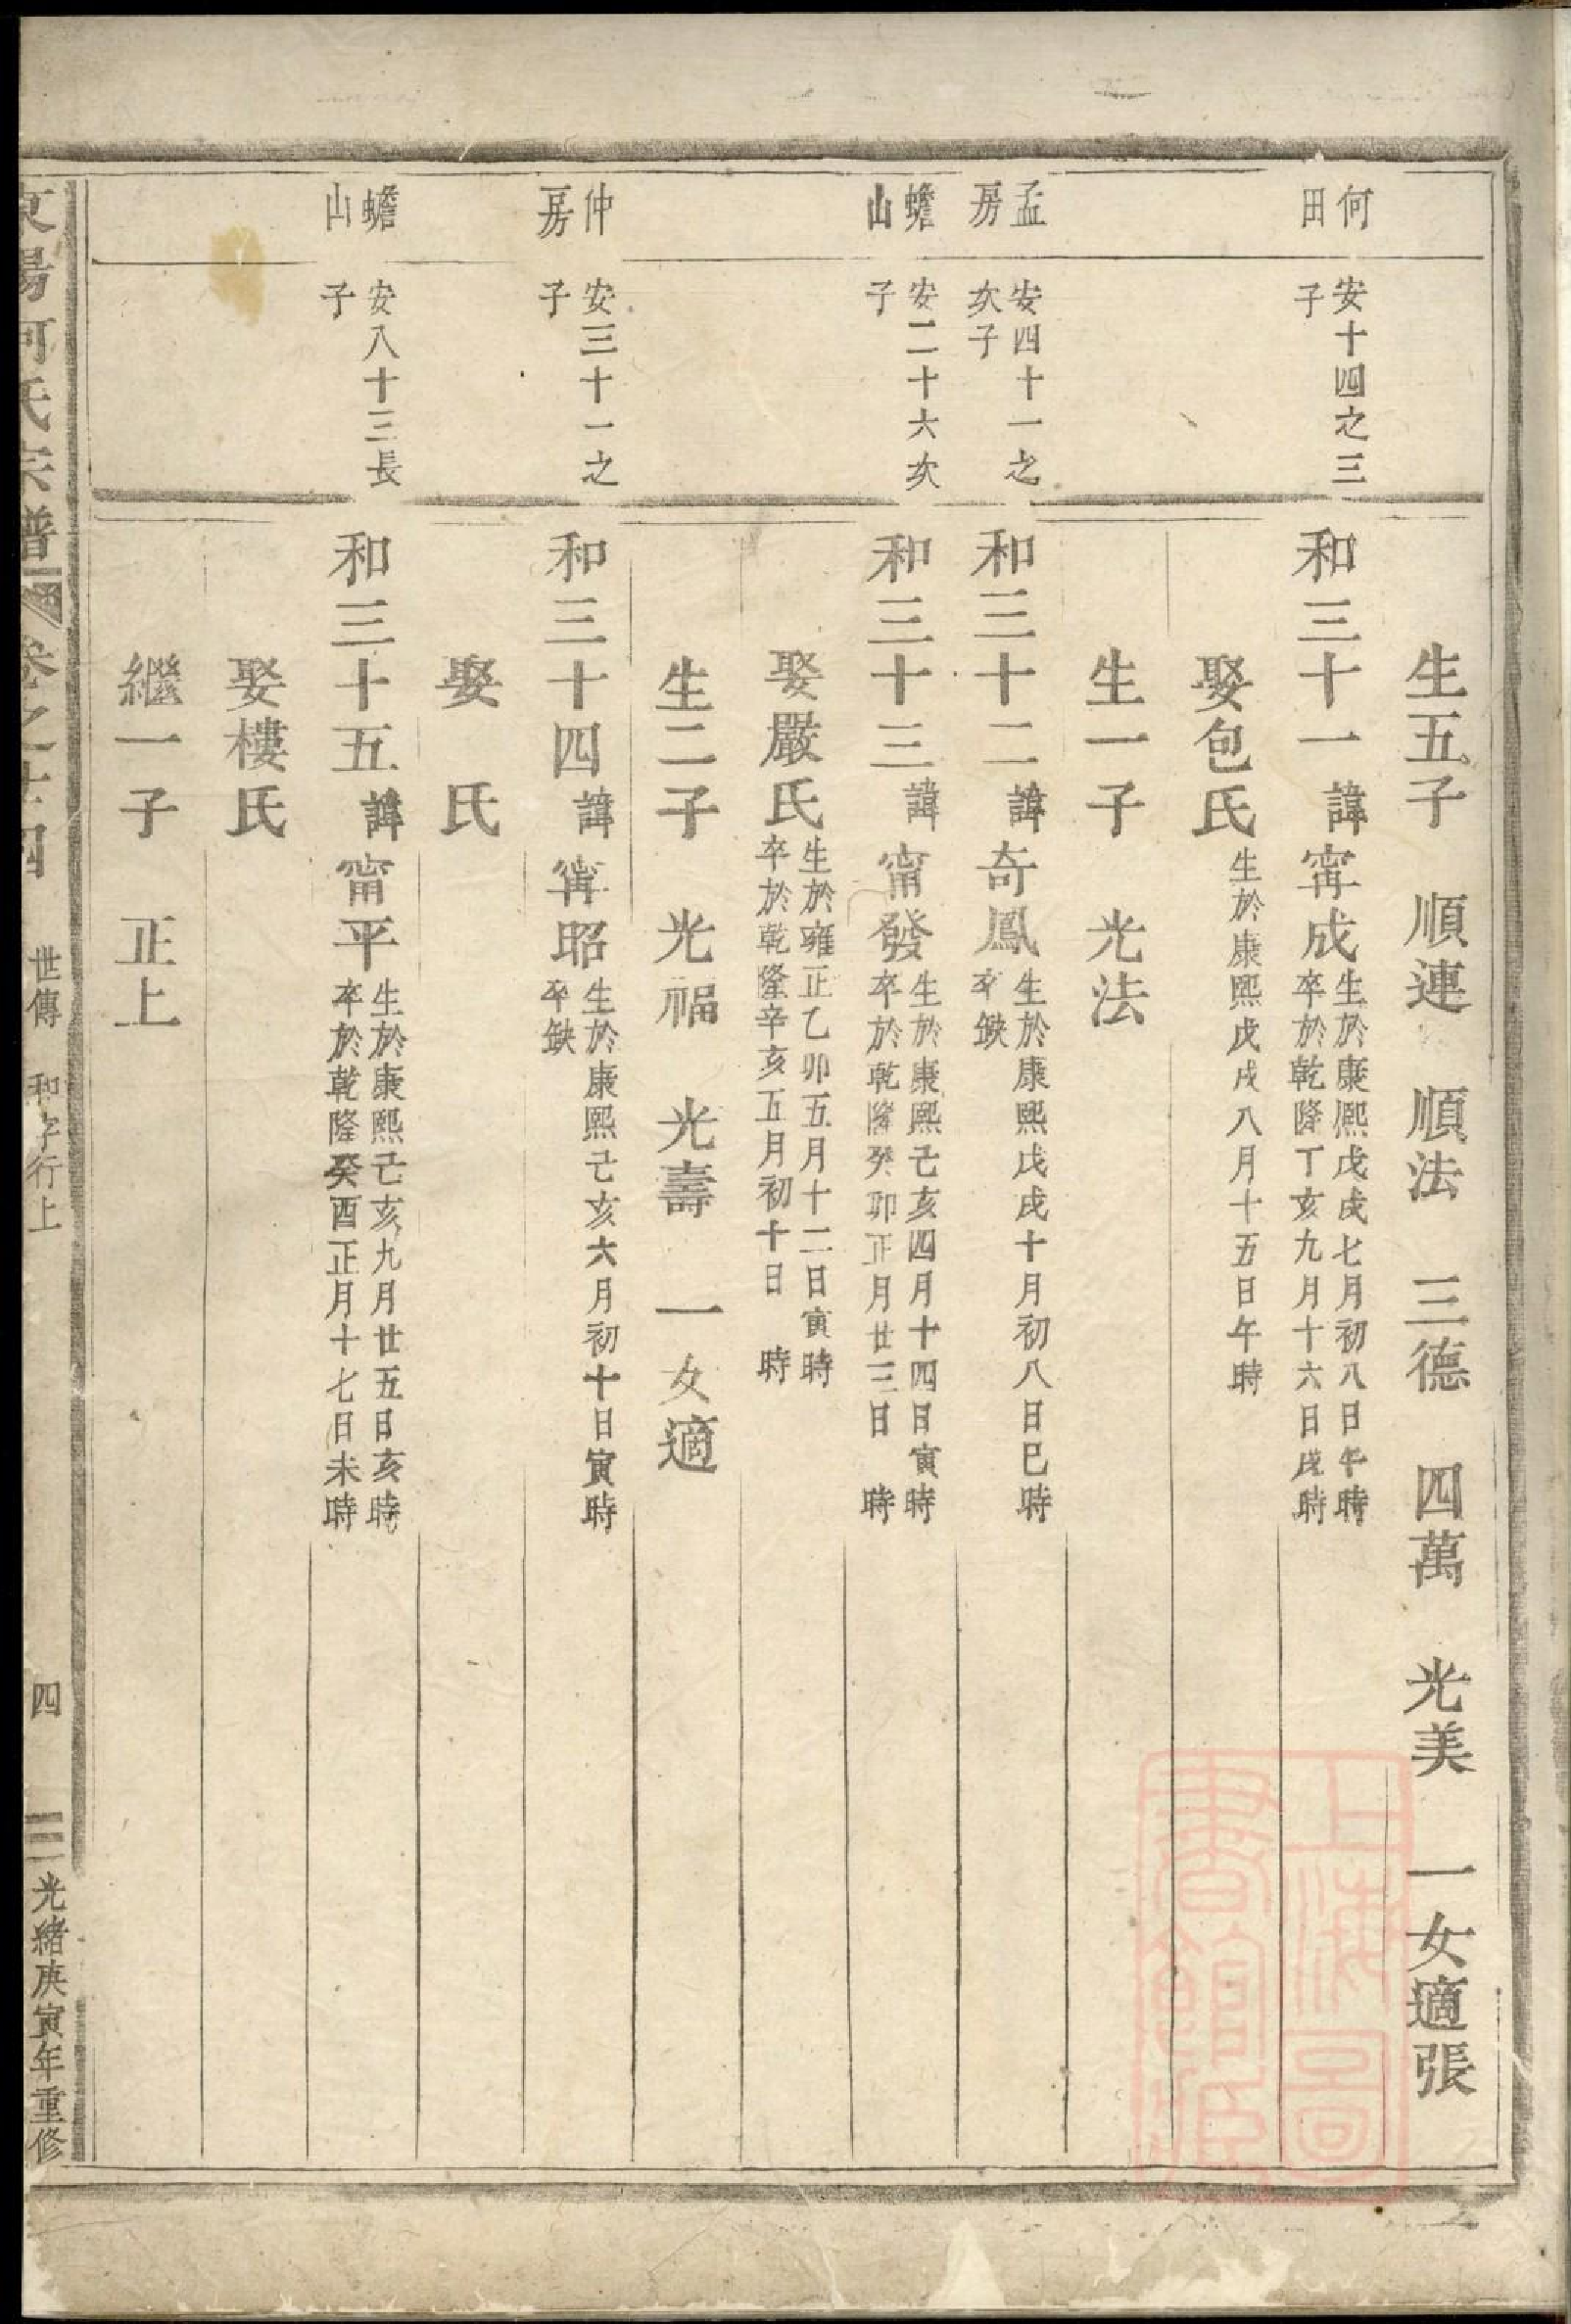 生五子 順連 順法 三德 四萬 光美 一女適張
何田
安十四之三子
和三十一諱甯成生於康熙戊戌七月初八日午時
卒於乾隆丁亥九月十六日戌時
娶包氏生於康熙戊戌八月十五日午時
生一子 光法
孟房
安四十一之次子
和三十二諱奇鳳生於康熙戊戌十月初八日巳時
卒缺
蟾山
安二十六次子
和三十三諱甯發生於康熙己亥四月十四日寅時
卒於乾隆癸卯正月廿三日 時
娶嚴氏生於雍正乙卯五月十二日寅時
卒於乾隆辛亥五月初十日 時
生二子 光福 光壽 一女適
仲房
安三十一之子
和三十四諱甯昭生於康熙己亥六月初十日寅時
卒缺
娶 氏
蟾山
安八十三長子
和三十五諱甯平生於康熙己亥九月廿五日亥時
卒於乾隆癸酉正月十七日未時
娶樓氏
繼一子 正上
東陽何氏宗譜 卷之十四 世傳 和字行上 四 光緒庚寅年重修
上海圖
書館藏